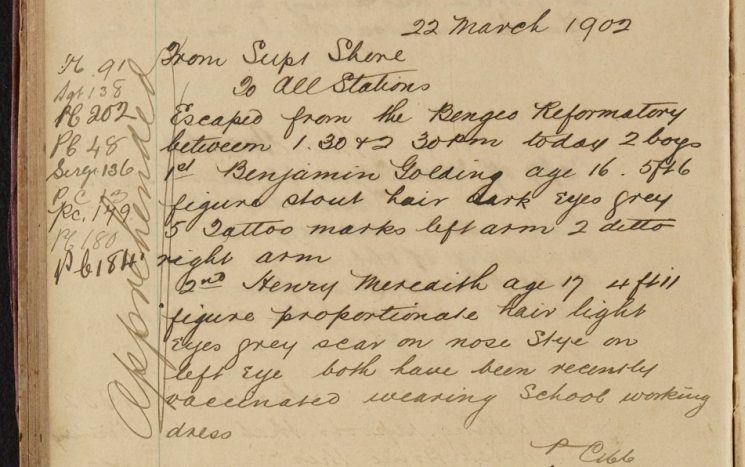 22 March 1902
From Supt Shore
To All Stations
Escaped from the Bengeo Reformatory
between 1.30 & 2 30 pm today 2 boys
1st Benjamin Golding age 16. 5ft6
figure stout hair dark Eyes grey
5 Tattoo marks left arm 2 ditto
right arm
2nd Henry Meredith age 17 4ft11
figure proportionate hair light
Eyes grey scar on nose Stye on
left Eye both have been recently
vaccinated wearing School working
dress
91
Sgt 138
PC 202
PC 48
Sergt 136
P.C. 13
Pc. 149
PC 180
PC 184
Apprehended